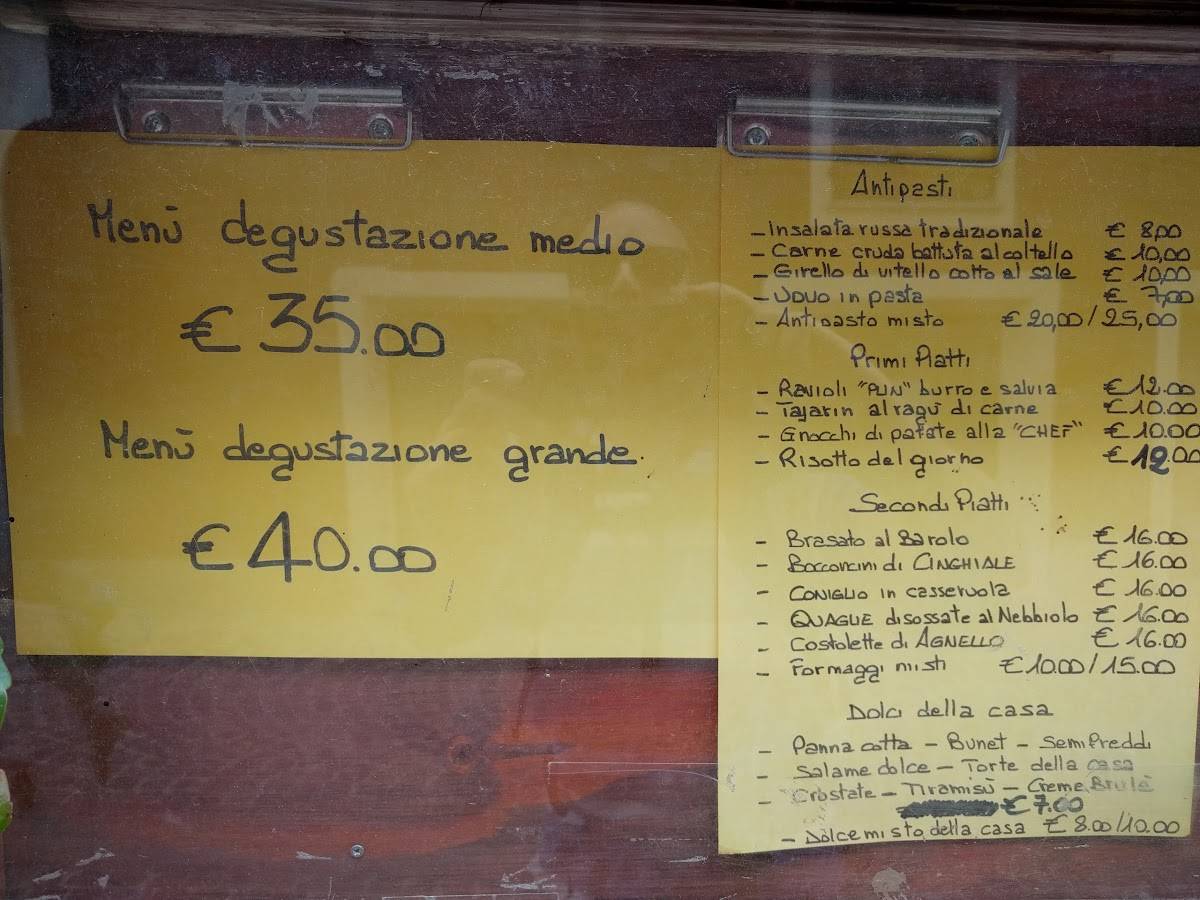 Menù degustazione medio
€ 35.00
Menù degustazione grande
€ 40.00
Antipasti
- Insalata russa tradizionale € 8,00
- Carne cruda battuta al coltello € 10,00
- Girello di vitello cotto al sale € 10,00
- Uovo in pasta € 7,00
- Antipasto misto € 20,00/25,00
Primi Piatti
- Ravioli "PLIN" burro e salvia € 12.00
- Tajarin al ragù di carne € 10.00
- Gnocchi di patate alla "CHEF" € 10.00
- Risotto del giorno € 12.00
Secondi Piatti
- Brasato al Barolo € 16.00
- Bocconcini di CINGHIALE € 16.00
- CONIGLIO in casseruola € 16.00
- QUAGLIE disossate al Nebbiolo € 16.00
- Costolette di AGNELLO € 16.00
- Formaggi misti € 10.00/15.00
Dolci della casa
- Panna cotta - Bunet - Semifreddi
- Salame dolce - Torte della casa
- Crostate - Tiramisù - Creme Brulè
€ 7.00
- Dolce misto della casa € 8.00/10.00